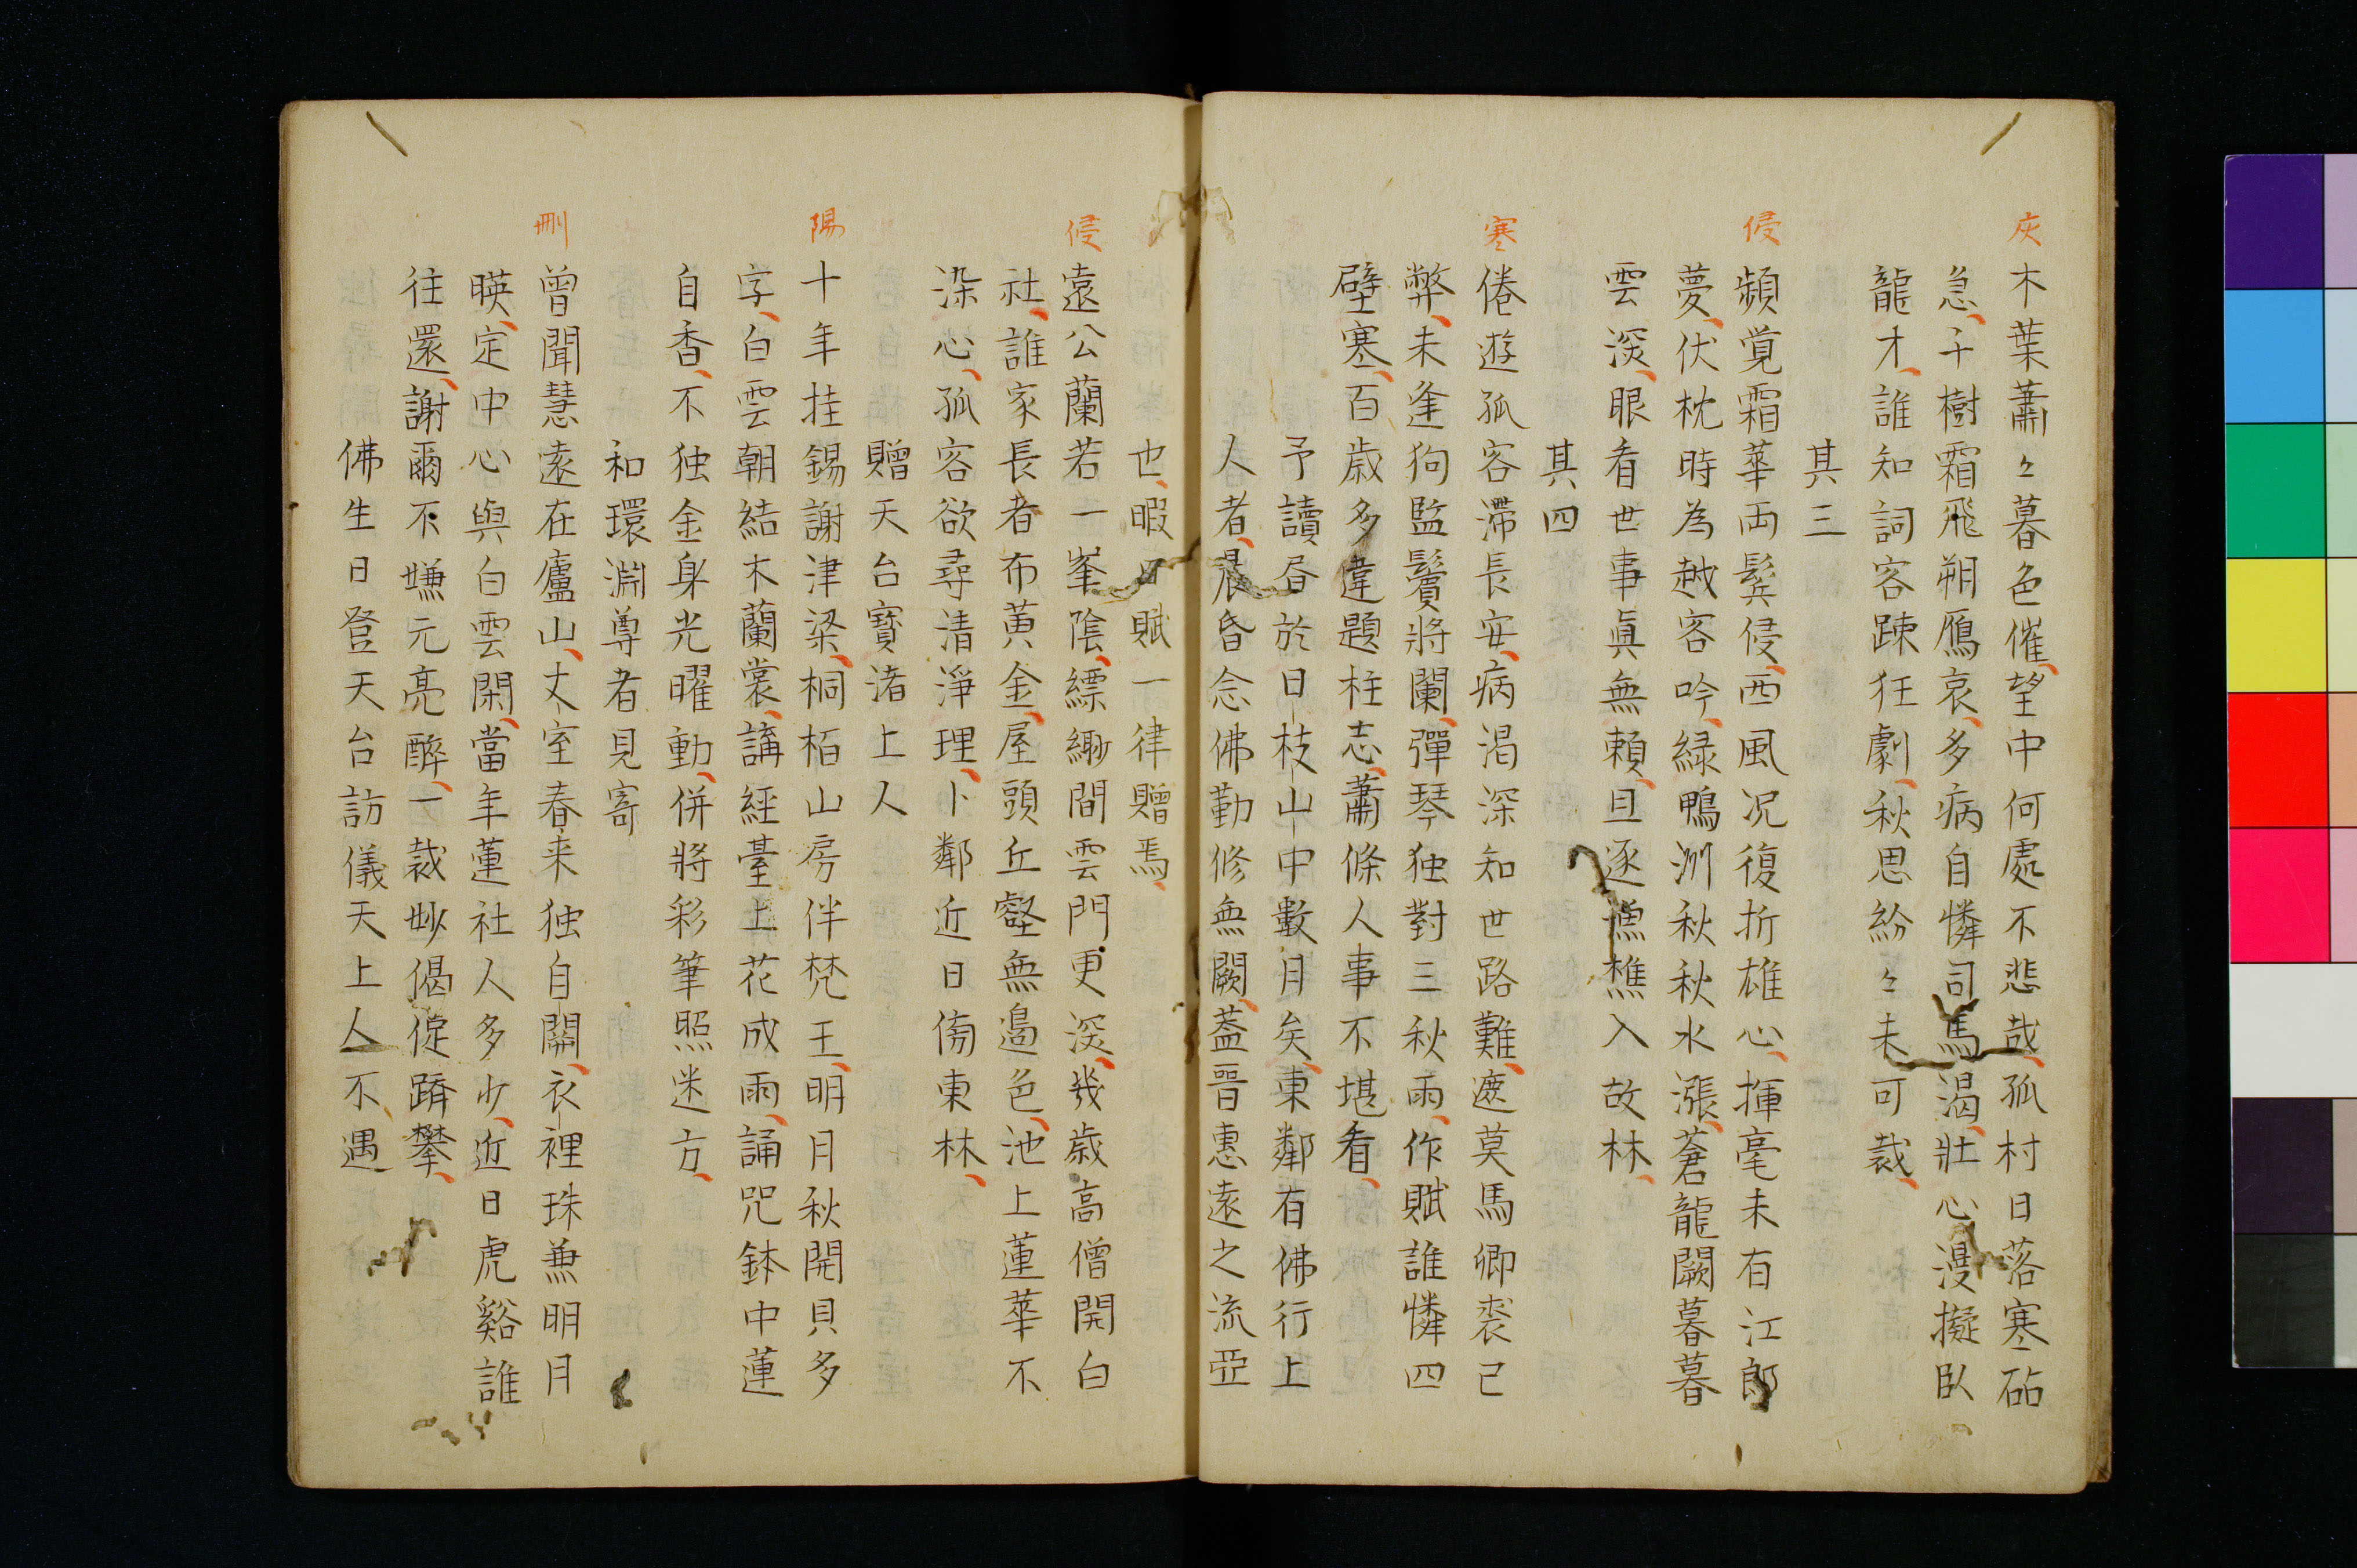 灰
木葉蕭〻暮色催、望中何處不悲哉、孤村日落寒砧
急、千樹霜飛朔鴈哀、多病自憐司馬渴、壯心漫擬臥
龍才、誰知詞客踈狂劇、秋思紛〻未可裁、
其三
侵
頻覚霜華両鬂侵、西風况復折雄心、揮毫未有江郎
夢、伏枕時為越客吟、緑鴨洲秋秋水漲、蒼龍闕暮暮
雲淡、眼看世事眞無頼、且逐漁樵入故林、
其四
寒
倦遊孤客滯長安、病渇深知世路難、遮莫馬卿裘已
弊、未逢狗監鬢將闌、彈琴独對三秋雨、作賦誰憐四
壁寒、百歳多違題柱志、蕭條人事不堪看、
予讀昼於日枝山中數月矣、東鄰有佛行上
人者、晨昏念佛勤修無闕、蓋晋惠遠之流亞
也、暇日賦一律贈焉、
侵
遠公蘭若一峯陰、縹緲間雲門更深、幾歳高僧開白
社、誰家長者布黄金、屋頭丘壑無邉色、池上蓮華不
染心、孤客欲尋清淨理、卜鄰近日傍東林、
贈天台寳渚上人
陽
十年挂錫謝津梁、桐栢山房伴梵王、明月秋開貝多
字、白雲朝結木蘭裳、講經臺上花成雨、誦咒鉢中蓮
自香、不独金身光曜動、併將彩筆照迷方、
和環淵尊者見寄
刪
曾聞慧遠在廬山、丈室春来独自關、衣裡珠兼明月
暎、定中心與白雲閑、當年蓮社人多少、近日虎谿誰
往還、謝爾不嫌元亮醉、一裁妙偈促躋攀、
佛生日登天台訪儀天上人不遇